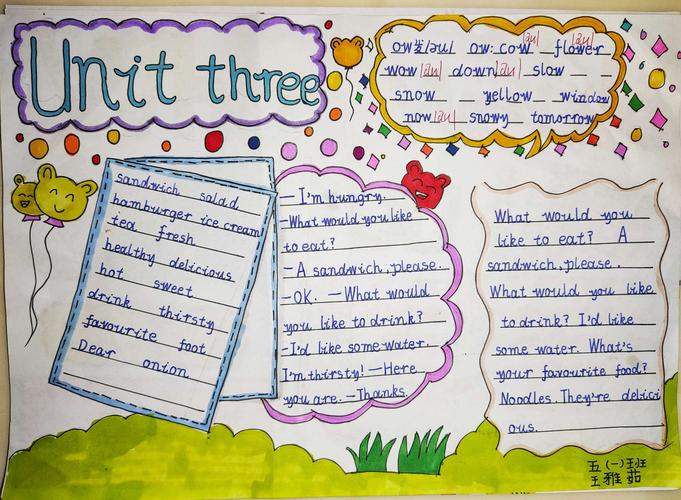 Unit three
ow发/əu/ ow: cow [au] flower [au]
wow [au] down [au] slow
snow yellow window
now [au] snowy tomorrow
sandwich salad
hamburger ice cream
tea fresh
healthy delicious
hot sweet
drink thirsty
favourite foot
Dear onion
— I'm hungry.
—What would you like
to eat?
— A sandwich, please.
—OK. — What would
you like to drink?
—I'd like some water.
I'm thirsty! —Here
you are. —Thanks.
What would you
like to eat? A
sandwich, please.
What would you like
to drink? I'd like
some water. What's
your favourite food?
Noodles. They're delici
ous.
五(一)班
王雅茹